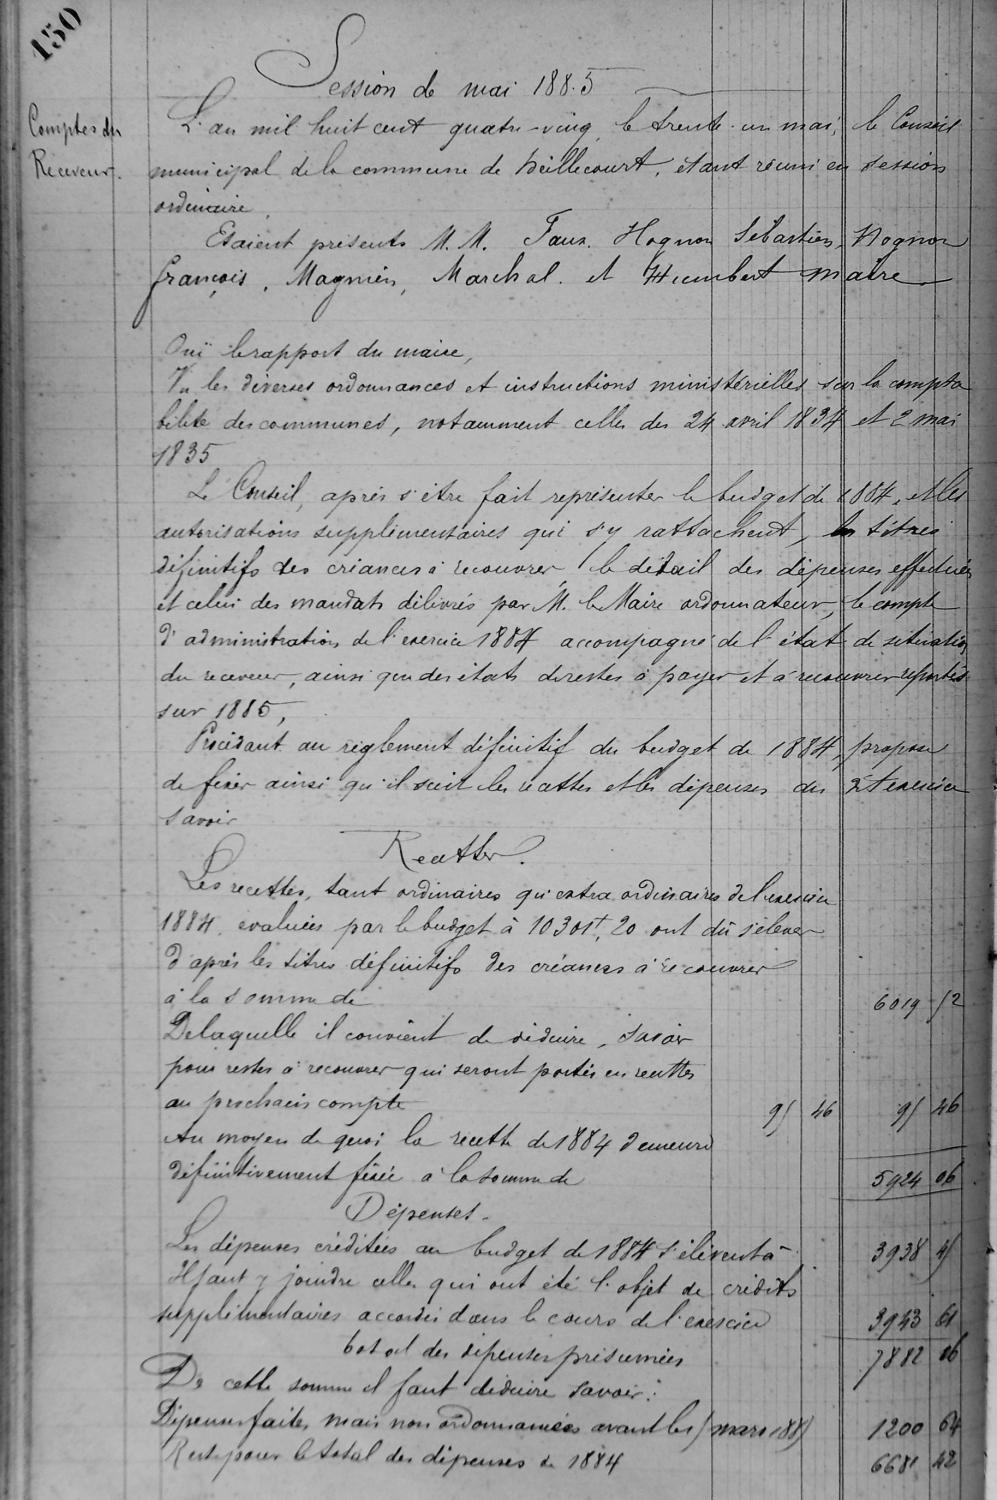 150
Session de mai 1885
Comptes du
Receveur.
L'an mil huit cent quatre-vingt le trente-un mai, le Conseil
municipal de la commune de heillecourt, étant réuni en session
ordinaire,
Etaient présents M. M. Faux. Hognon Sébastien, Hognon
françois, Magnien, Marchal. et Humbert maire
Ouï le rapport du maire,
Vu les diverses ordonnances et instructions ministérielles sur la compta
bilité des communes, notamment celles des 24 avril 1834 et 2 mai
1835
Le Conseil, après s'être fait représenter le budget de 1884, et les
autorisations supplémentaires qui s'y rattachent, les titres
définitifs des créances à recouvrer, le détail des dépenses effectuées
et celui des mandats délivrés par M. le Maire ordonnateur, le compte
d'administration de l'exercice 1884 accompagné de l'état de situation
du receveur, ainsi que des états de restes à payer et à recouvrer reportés
sur 1885,
Procédant au règlement définitif du budget de 1884, propose
de fixer ainsi qu'il suit les recettes et les dépenses du dt exercice
savoir
Recettes.
Les recettes, tant ordinaires qu'extra ordinaires de l'exercice
1884, évaluées par le budget à 10301f,20 ont dû s'élever
d'après les titres définitifs des créances à recouvrer
à la somme de 6019 52
De laquelle il convient de déduire, savoir
pour restes à recouvrer qui seront portés en recettes
au prochain compte 95 46 95 46
Au moyen de quoi la recette de 1884 demeure
définitivement fixée à la somme de 5924 06
Dépenses.
Les dépenses créditées au budget de 1884 s'élèvent à 3938 45
Il faut y joindre celles qui ont été l'objet de crédits
supplémentaires accordés dans le cours de l'exercice 3943 61
total des dépenses présumées 7882 06
De cette somme il faut déduire savoir:
Dépenses faites, mais non ordonnancées avant les 5 mars 1885 1200 64
Reste pour le total des dépenses de 1884 6681 42